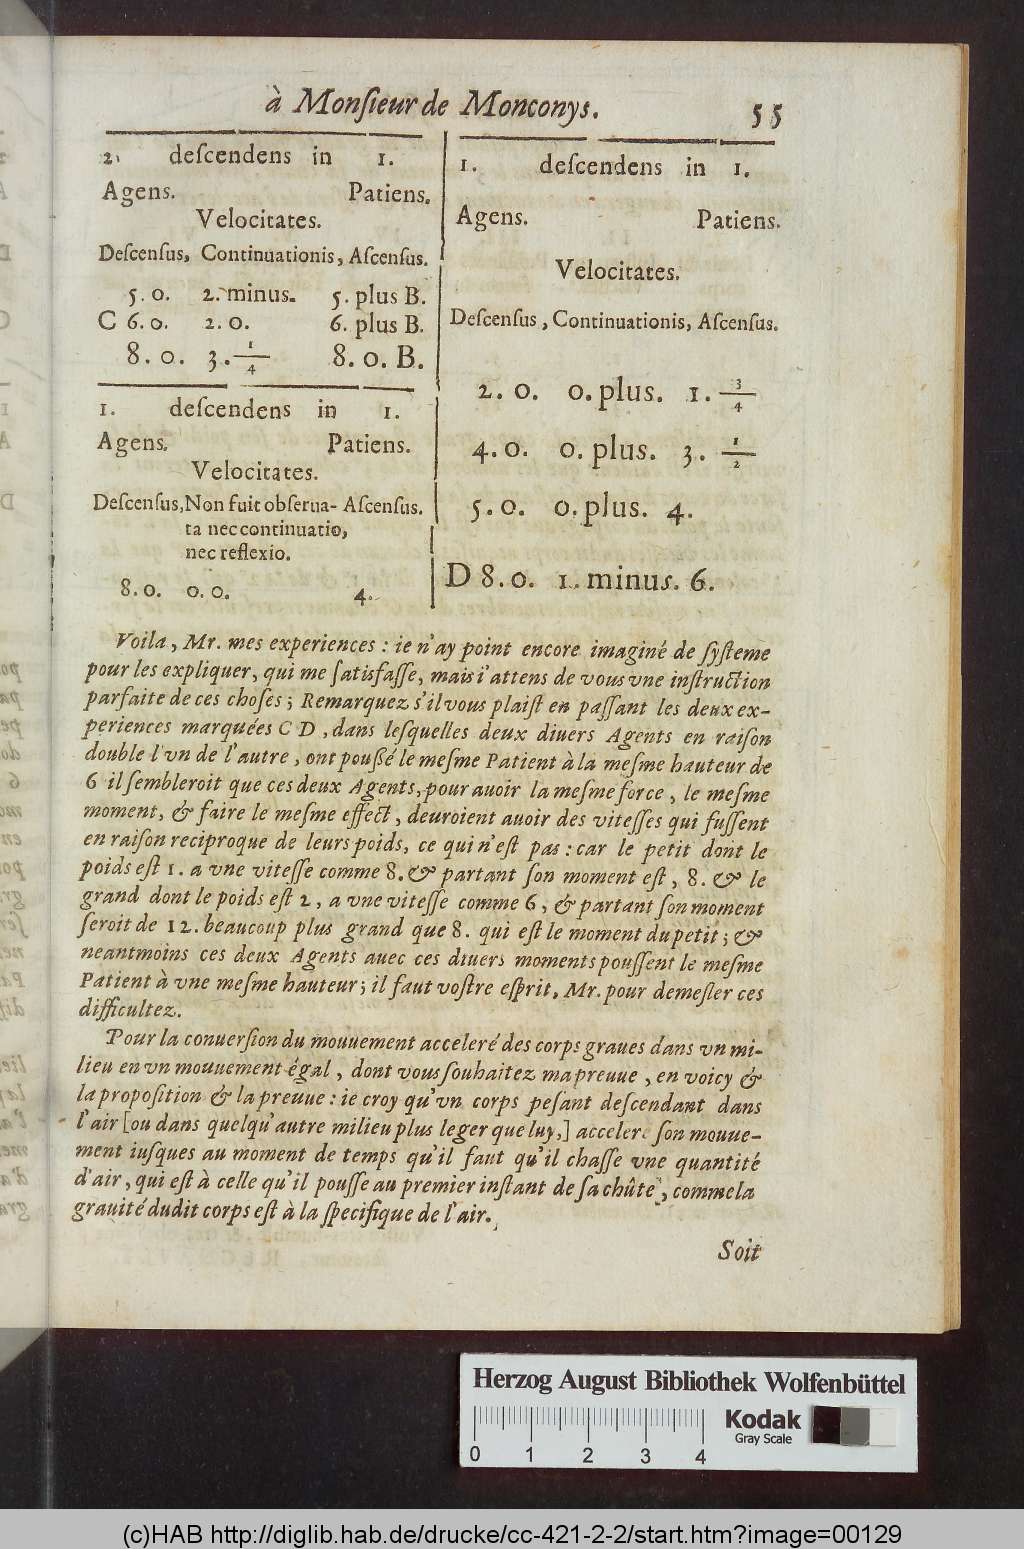 à Monſieur de Monconys. 55
2. deſcendens in 1.
Agens. Patiens.
Velocitates.
Deſcenſus, Continuationis, Aſcenſus.
5. 0. 2. minus. 5. plus B.
C 6. 0. 2. 0. 6. plus B.
8. 0. 3. 1/4 8. 0. B.
1. deſcendens in 1.
Agens. Patiens.
Velocitates.
Deſcenſus, Non fuit obſerua- Aſcenſus.
ta nec continuatio,
nec reflexio.
8. 0. 0. 0. 4.
1. deſcendens in 1.
Agens. Patiens.
Velocitates.
Deſcenſus, Continuationis, Aſcenſus.
2. 0. 0. plus. 1. 3/4
4. 0. 0. plus. 3. 1/2
5. 0. 0. plus. 4.
D 8. 0. 1. minus. 6.
Voila, Mr. mes experiences : ie n'ay point encore imaginé de ſyſteme
pour les expliquer, qui me ſatisfaſſe, mais i'attens de vous vne inſtruction
parfaite de ces choſes ; Remarquez s'il vous plaiſt en paſſant les deux ex-
periences marquées C D, dans leſquelles deux diuers Agents en raiſon
double l'vn de l'autre, ont pouſſé le meſme Patient à la meſme hauteur de
6 il ſembleroit que ces deux Agents, pour auoir la meſme force, le meſme
moment, & faire le meſme effect, deuroient auoir des viteſſes qui fuſſent
en raiſon reciproque de leurs poids, ce qui n'eſt pas : car le petit dont le
poids eſt 1. a vne viteſſe comme 8. & partant ſon moment eſt, 8. & le
grand dont le poids eſt 2, a vne viteſſe comme 6, & partant ſon moment
ſeroit de 12. beaucoup plus grand que 8. qui eſt le moment du petit ; &
neantmoins ces deux Agents auec ces diuers moments pouſſent le meſme
Patient à vne meſme hauteur ; il faut voſtre eſprit, Mr. pour demeſler ces
difficultez.
Pour la conuerſion du mouuement acceleré des corps graues dans vn mi-
lieu en vn mouuement égal, dont vous ſouhaitez ma preuue, en voicy &
la propoſition & la preuue : ie croy qu'vn corps peſant deſcendant dans
l'air [ou dans quelqu'autre milieu plus leger que luy,] accelere ſon mouue-
ment iuſques au moment de temps qu'il faut qu'il chaſſe vne quantité
d'air, qui eſt à celle qu'il pouſſe au premier inſtant de ſa chûte, comme la
grauité dudit corps eſt à la ſpecifique de l'air.
Soit
Herzog August Bibliothek Wolfenbüttel
Kodak
Gray Scale
0 1 2 3 4
(c)HAB http://diglib.hab.de/drucke/cc-421-2-2/start.htm?image=00129